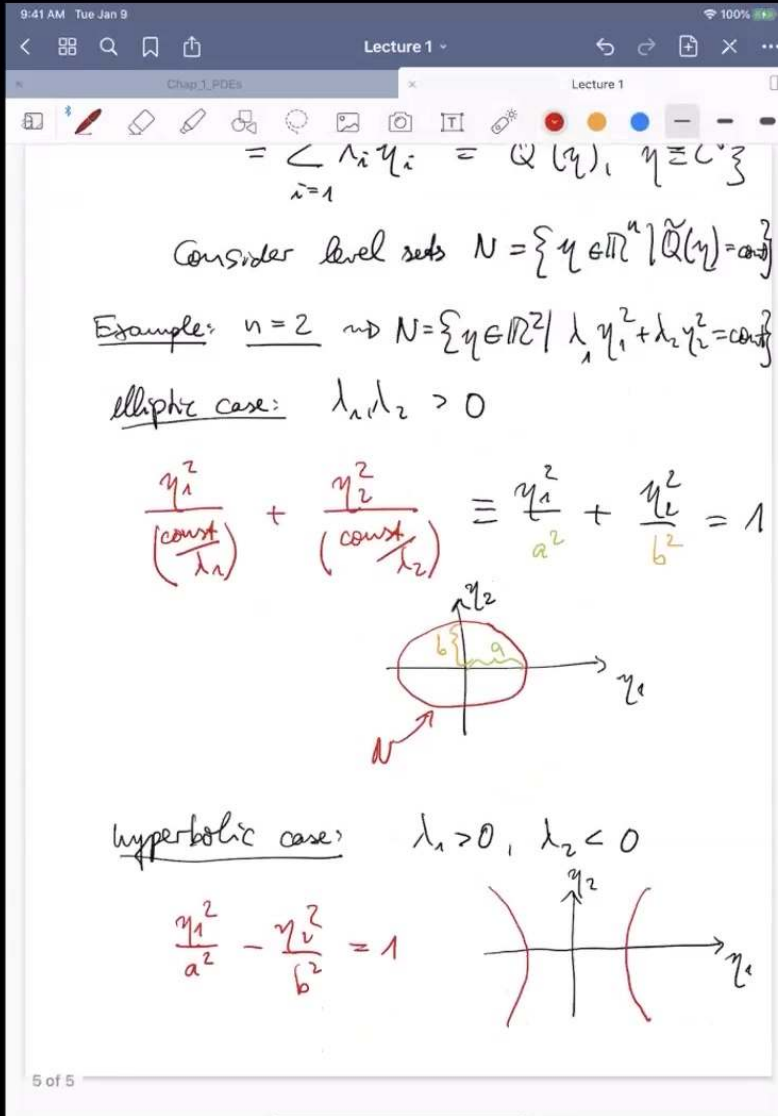 9:41 AM Tue Jan 9 100%
Lecture 1
Chap_1_PDEs Lecture 1
= Σ λi ηi = Q̃(η),
i=1
Consider level sets N = {η ∈ ℝⁿ | Q̃(η) = const}
Example: n = 2 ⇝ N = {η ∈ ℝ² | λ₁ η₁² + λ₂ η₂² = const}
elliptic case: λ₁, λ₂ > 0
η₁² / (const/λ₁) + η₂² / (const/λ₂) ≡ η₁²/a² + η₂²/b² = 1
η₂
b a
η₁
N
hyperbolic case: λ₁ > 0, λ₂ < 0
η₂
η₁²/a² − η₂²/b² = 1
η₁
5 of 5